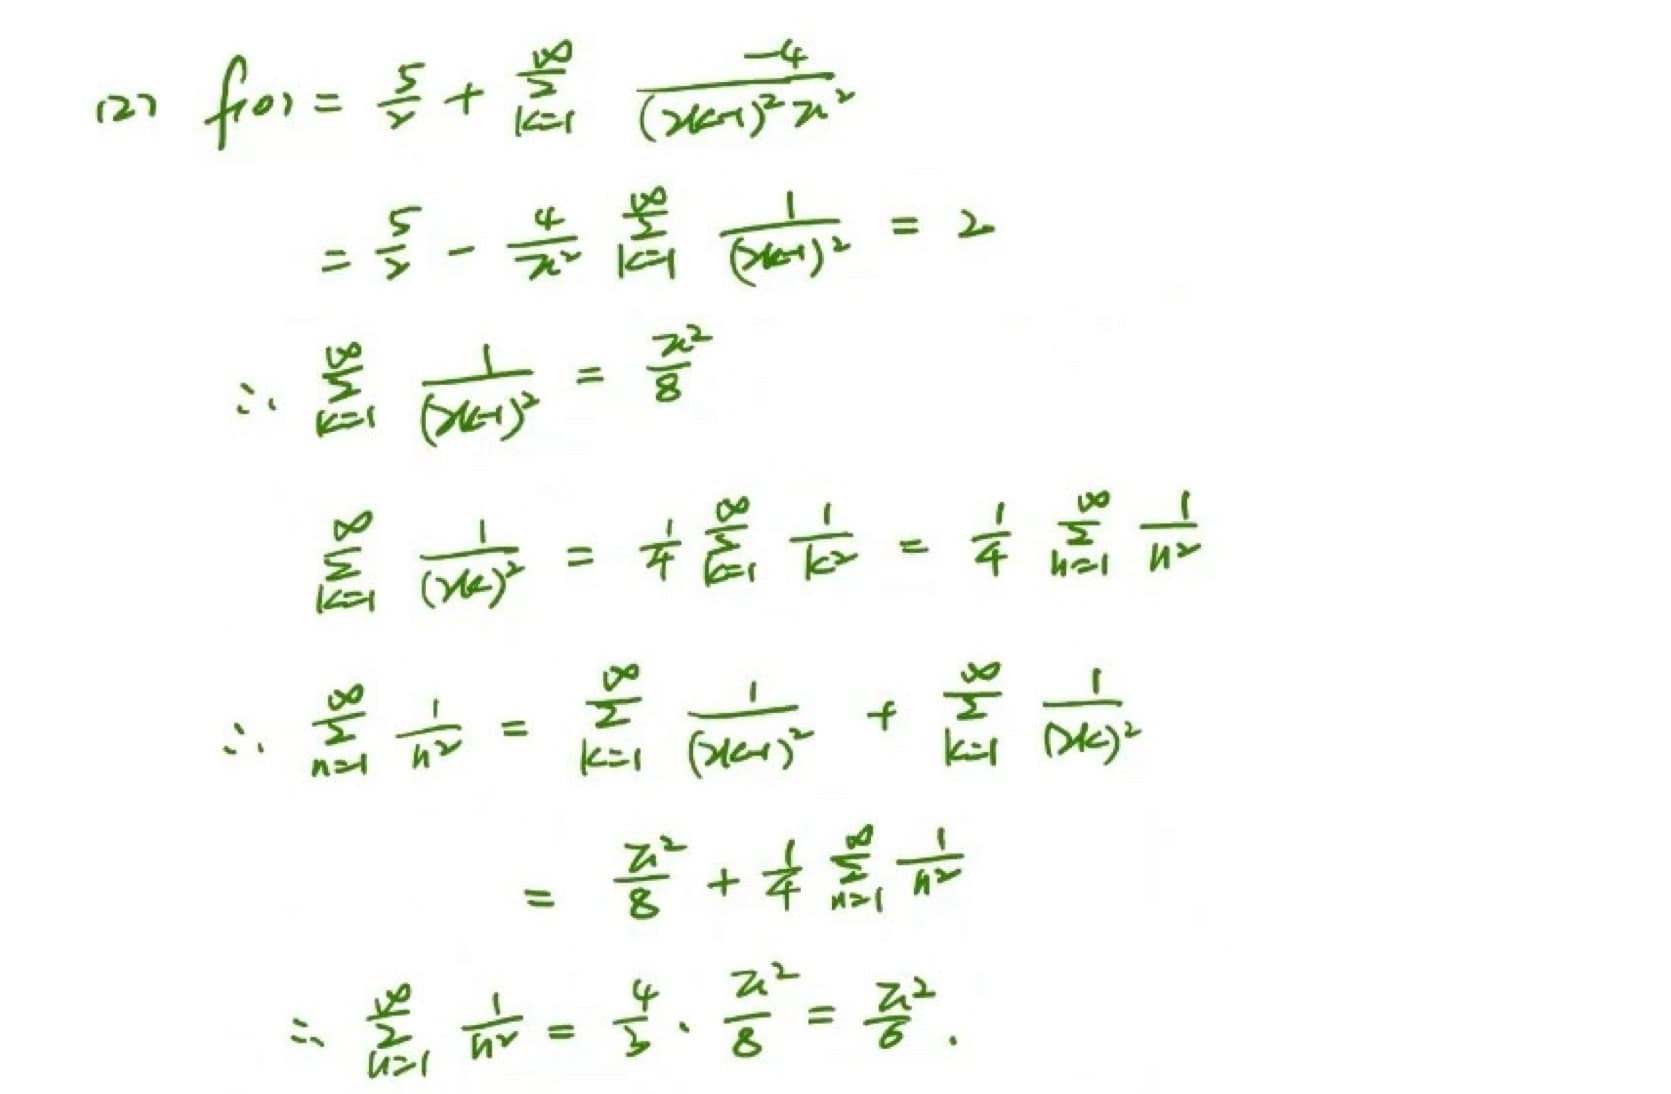 (2) f(0) = \frac{5}{2} + \sum_{k=1}^{\infty} \frac{-4}{(2k-1)^2 \pi^2}
= \frac{5}{2} - \frac{4}{\pi^2} \sum_{k=1}^{\infty} \frac{1}{(2k-1)^2} = 2
∴ \sum_{k=1}^{\infty} \frac{1}{(2k-1)^2} = \frac{\pi^2}{8}
\sum_{k=1}^{\infty} \frac{1}{(2k)^2} = \frac{1}{4} \sum_{k=1}^{\infty} \frac{1}{k^2} = \frac{1}{4} \sum_{n=1}^{\infty} \frac{1}{n^2}
∴ \sum_{n=1}^{\infty} \frac{1}{n^2} = \sum_{k=1}^{\infty} \frac{1}{(2k-1)^2} + \sum_{k=1}^{\infty} \frac{1}{(2k)^2}
= \frac{\pi^2}{8} + \frac{1}{4} \sum_{n=1}^{\infty} \frac{1}{n^2}
∴ \sum_{n=1}^{\infty} \frac{1}{n^2} = \frac{4}{3} \cdot \frac{\pi^2}{8} = \frac{\pi^2}{6}.